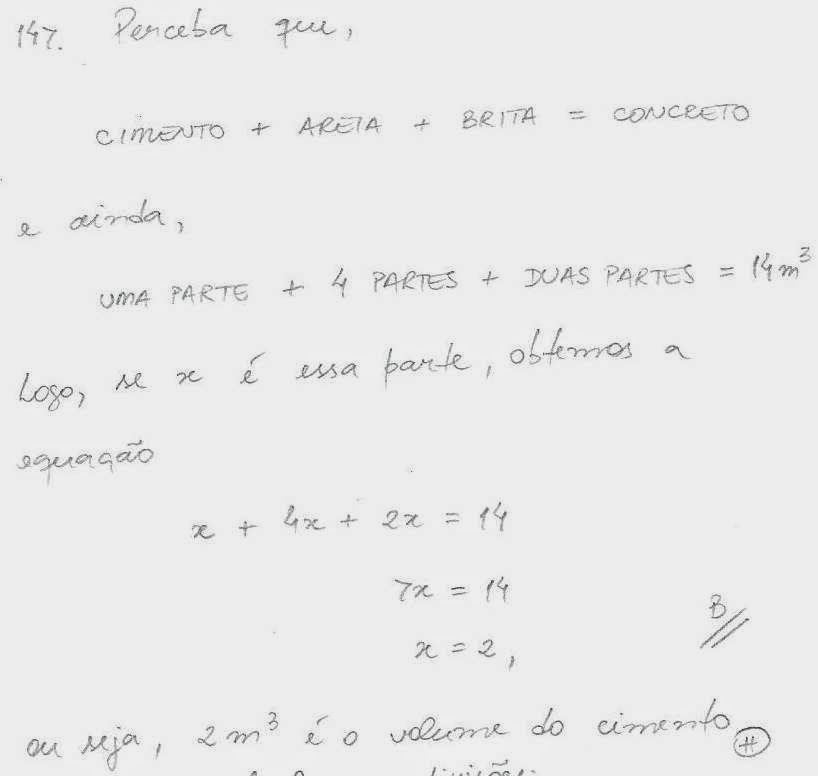 147. Perceba que,
CIMENTO + AREIA + BRITA = CONCRETO
e ainda,
UMA PARTE + 4 PARTES + DUAS PARTES = 14m³
Logo, se x é essa parte, obtemos a
equação
x + 4x + 2x = 14
7x = 14
B
x = 2,
ou seja, 2m³ é o volume do cimento #